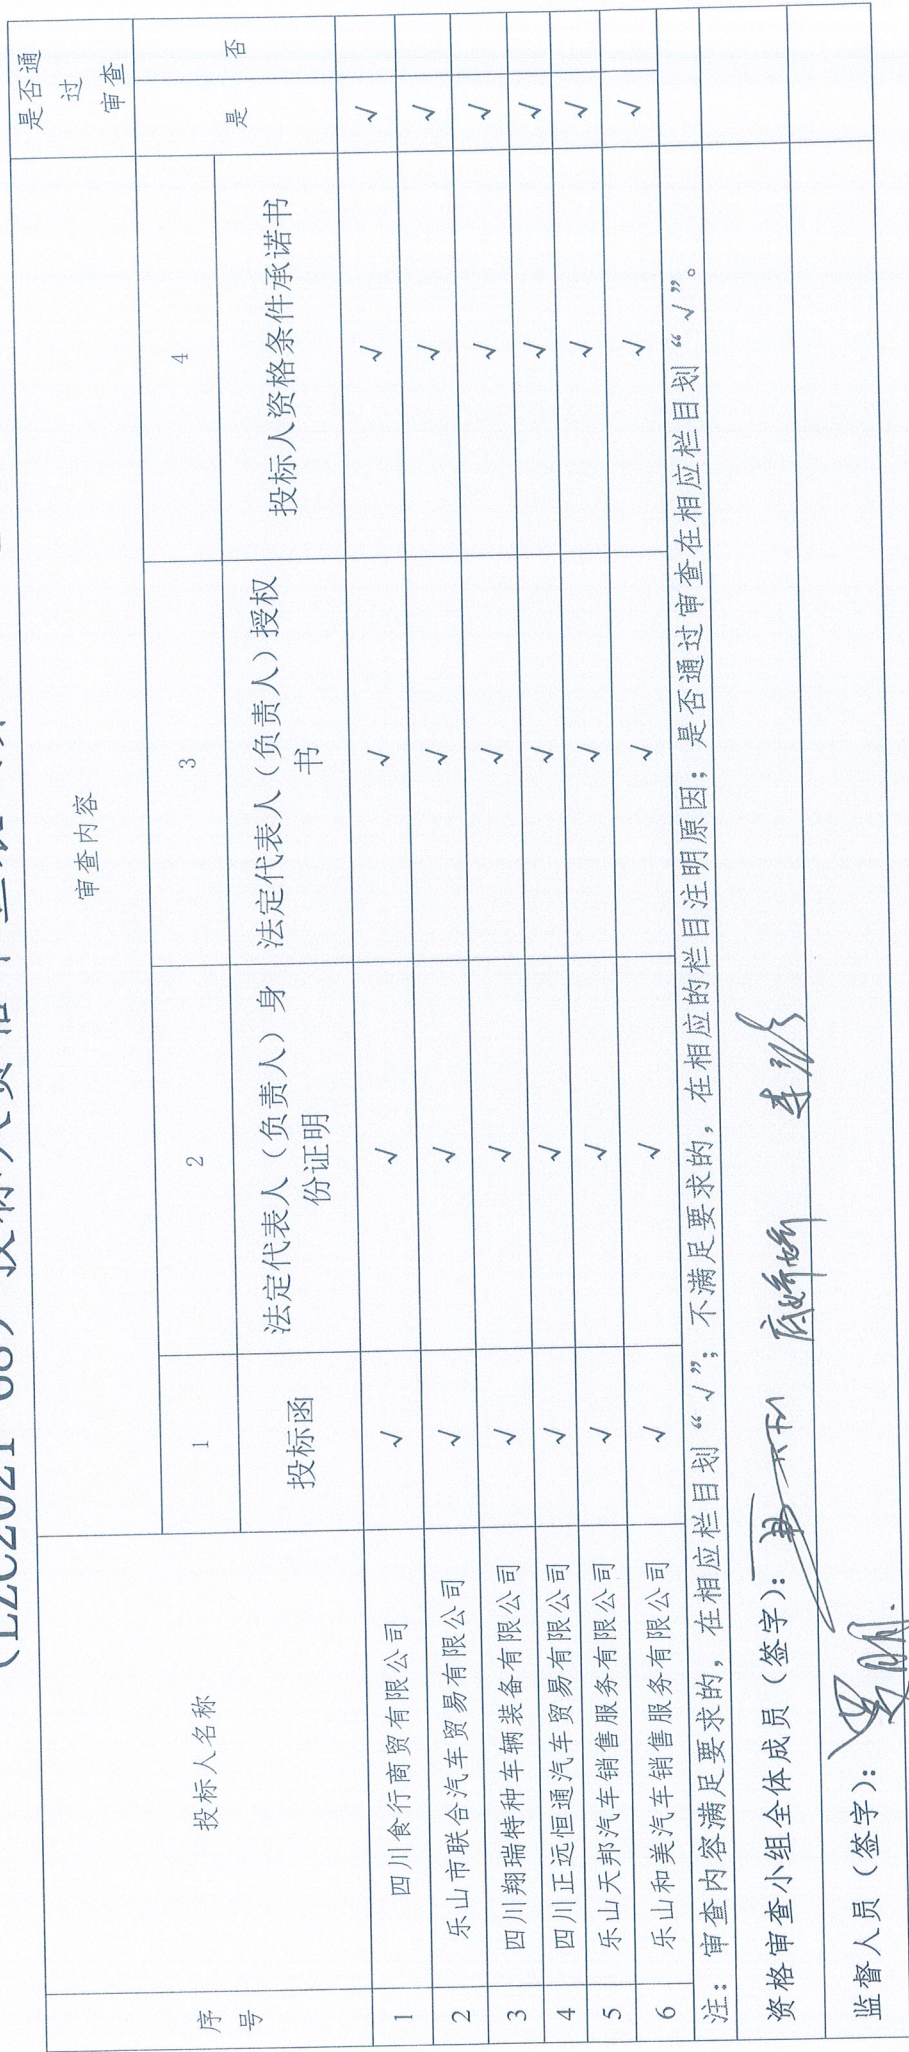 (LZC2021-68) 投标人资格审查
序号 投标人名称 审查内容 是否通过审查
1 2 3 4 是 否
投标函 法定代表人（负责人）身份证明 法定代表人（负责人）授权书 投标人资格条件承诺书
1 四川食行商贸有限公司 √ √ √ √ √
2 乐山市联合汽车贸易有限公司 √ √ √ √ √
3 四川翔瑞特种车辆装备有限公司 √ √ √ √ √
4 四川正远恒通汽车贸易有限公司 √ √ √ √ √
5 乐山天邦汽车销售服务有限公司 √ √ √ √ √
6 乐山和美汽车销售服务有限公司 √ √ √ √ √
注：审查内容满足要求的，在相应栏目划“√”；不满足要求的，在相应的栏目注明原因；是否通过审查在相应栏目划“√”。
资格审查小组全体成员（签字）：
监督人员（签字）：